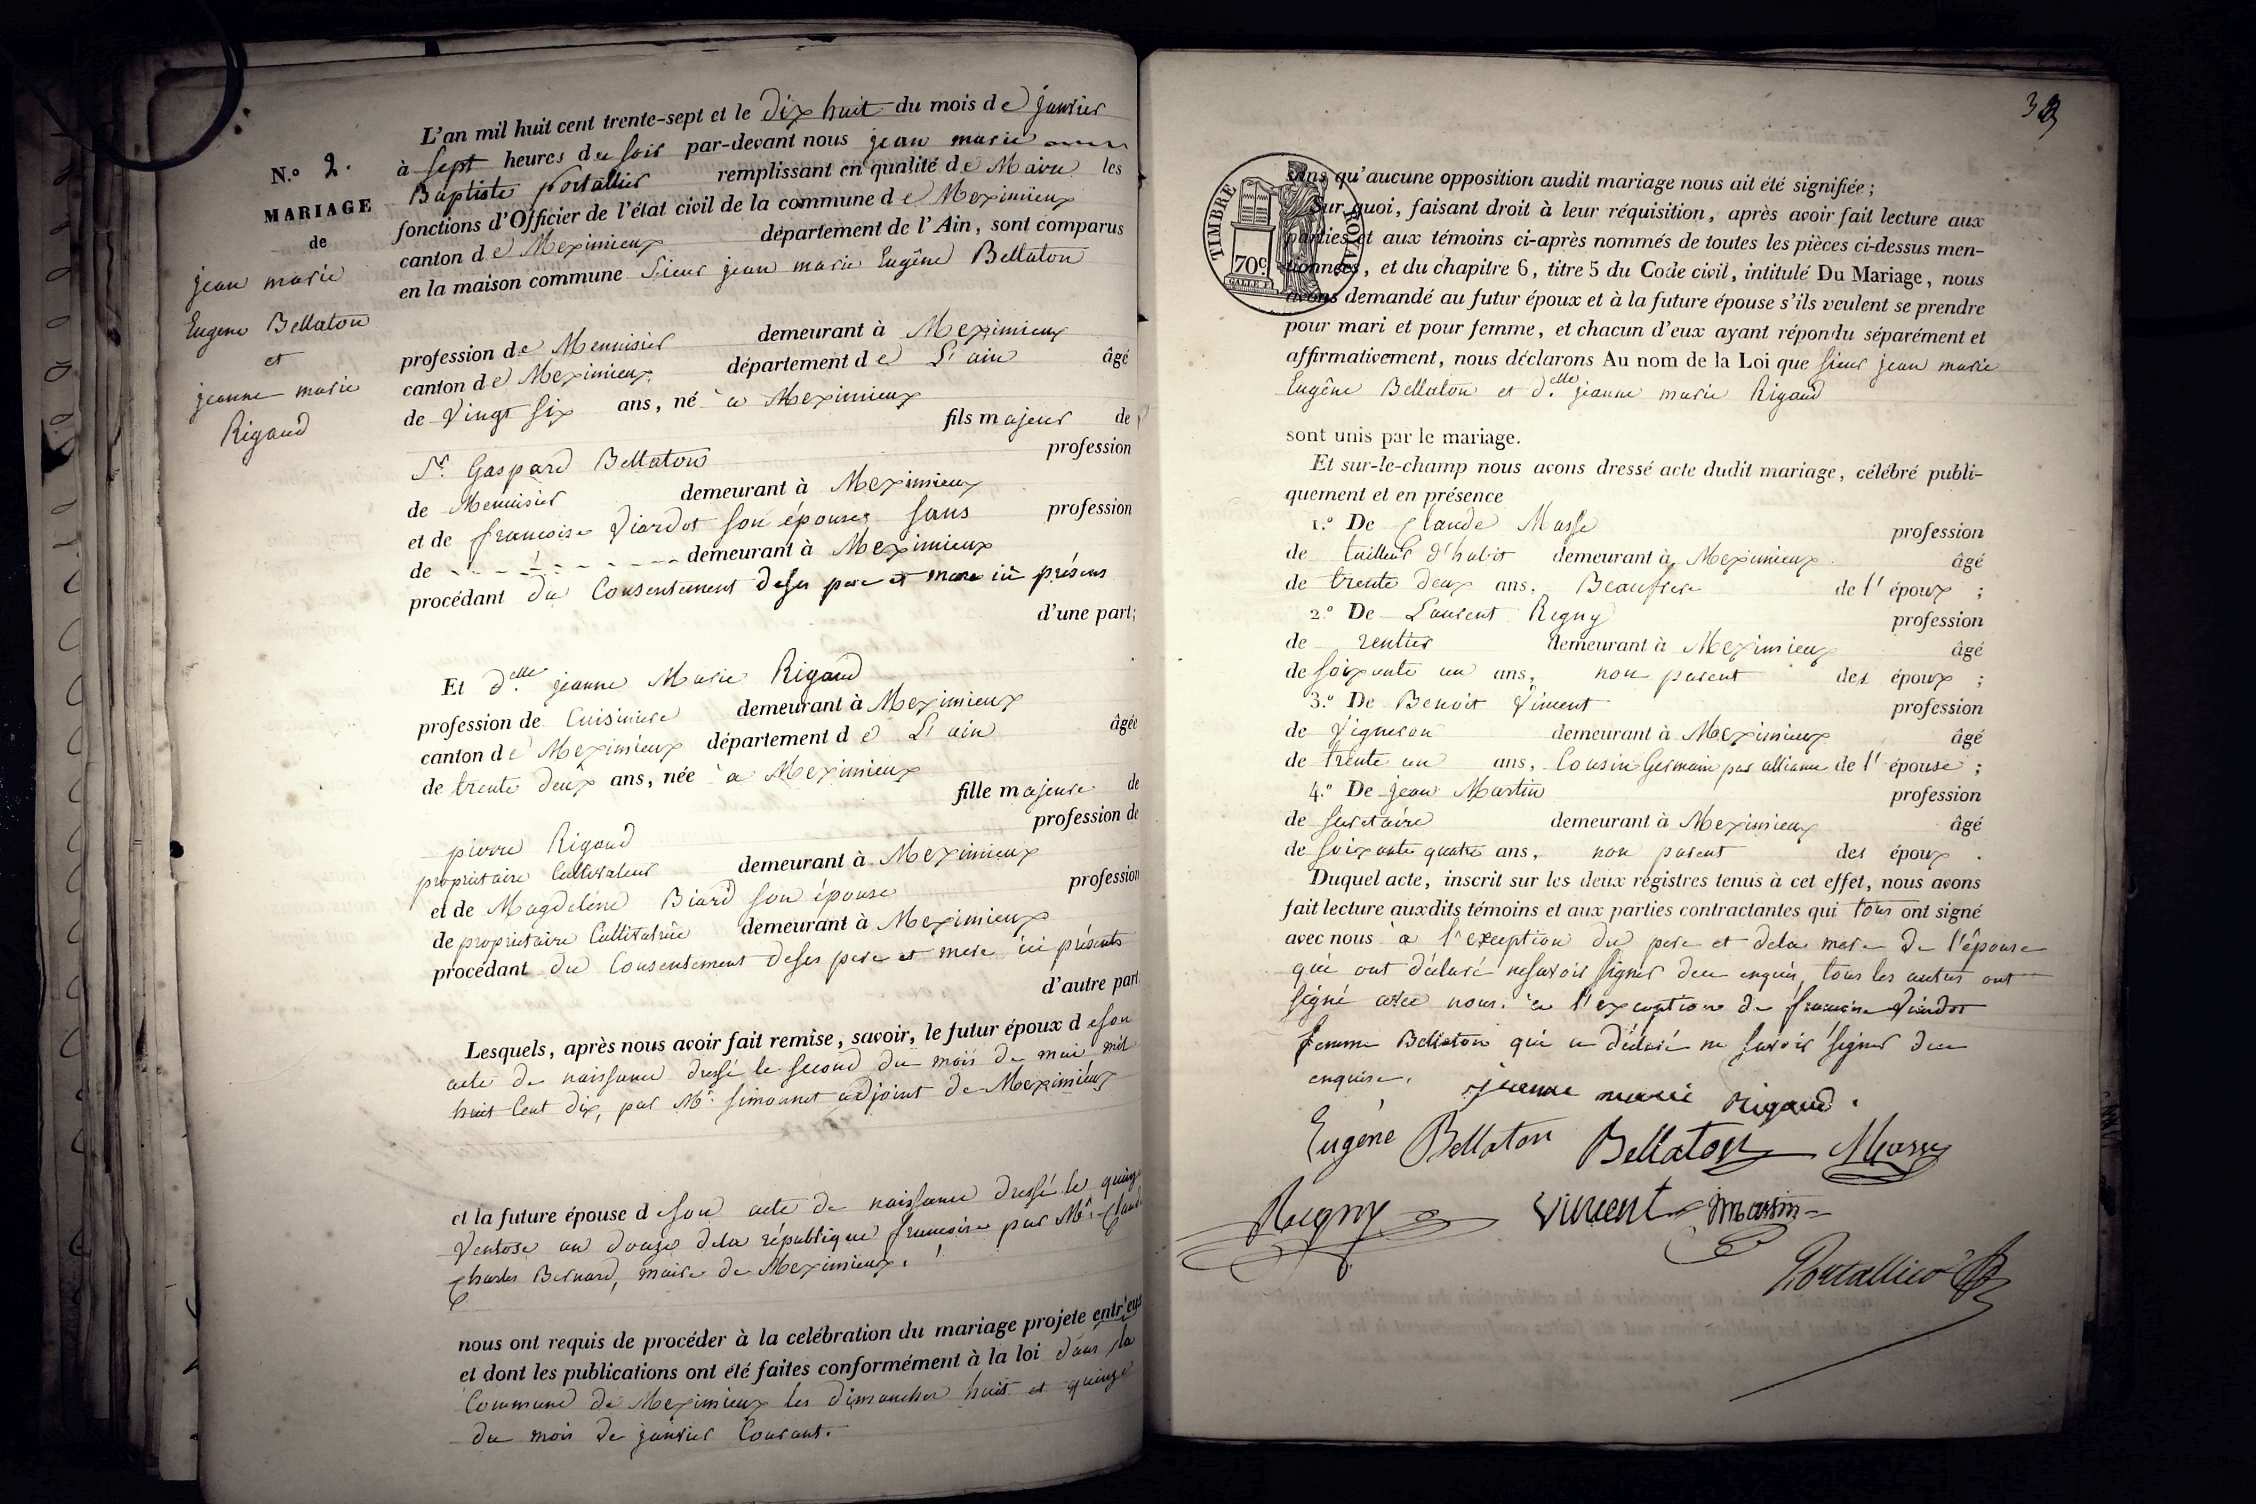 N.º 2.
MARIAGE
de
jean marie
Eugene Bellaton
et
jeanne marie
Rigaud
L'an mil huit cent trente-sept et le dix huit du mois de janvier
à sept heures du soir par-devant nous jean marie
Baptiste portallier remplissant en qualité de Maire les
fonctions d'Officier de l'état civil de la commune de Meximieux
canton de Meximieux département de l'Ain, sont comparus
en la maison commune Sieur jean marie Eugêne Bellaton
profession de Menuisier demeurant à Meximieux
canton de Meximieux département de L'ain âgé
de Vingt Six ans, né à Meximieux
fils majeur de
Sr. Gaspard Bellaton profession
de Menuisier demeurant à Meximieux
et de francoise Viardot son épouse sans profession
de demeurant à Meximieux
procédant du Consentement deses pere et mere ici présens
d'une part;
Et delle. jeanne Marie Rigaud
profession de Cuisiniere demeurant à Meximieux
canton de Meximieux département de L'ain âgée
de trente deux ans, née à Meximieux
fille majeure de
pierre Rigaud profession de
proprietaire Cultivateur demeurant à Meximieux
et de Magdeléne Biard son épouse profession
de proprietaire Cultivatrice demeurant à Meximieux
procédant du Consentement deses pere et mere ici présents
d'autre part
Lesquels, après nous avoir fait remise, savoir, le futur époux de son
acte de naissance dressé le second du mois de mai mil
huit Cent dix, par Mr. Simonnet adjoint de Meximieux
et la future épouse de son acte de naissance dressé le quinze
Ventose an douze dela république francoise par Mr. Claude
Charles Bernard, maire de Meximieux.
nous ont requis de procéder à la celébration du mariage projete entr'eux
et dont les publications ont été faites conformément à la loi dans la
Commune de Meximieux les dimanches huit et quinze
du mois de janvier Courant.
TIMBRE ROYAL
70c
sans qu'aucune opposition audit mariage nous ait été signifiée;
Sur quoi, faisant droit à leur réquisition, après avoir fait lecture aux
parties et aux témoins ci-après nommés de toutes les pièces ci-dessus men-
tionnées, et du chapitre 6, titre 5 du Code civil, intitulé Du Mariage, nous
avons demandé au futur époux et à la future épouse s'ils veulent se prendre
pour mari et pour femme, et chacun d'eux ayant répondu séparément et
affirmativement, nous déclarons Au nom de la Loi que Sieur jean marie
Eugêne Bellaton et delle. jeanne marie Rigaud
sont unis par le mariage.
Et sur-le-champ nous avons dressé acte dudit mariage, célébré publi-
quement et en présence
1.º De Claude Masse profession
de tailleur d'habit demeurant à Meximieux âgé
de trente deux ans, Beaufrere de l'époux ;
2.º De Laurent Regny profession
de rentier demeurant à Meximieux âgé
de soixante un ans, non parent des époux ;
3.º De Benoit Vincent profession
de Vigneron demeurant à Meximieux âgé
de trente un ans, Cousin Germain par alliance de l'épouse ;
4.º De jean Martin profession
de Secretaire demeurant à Meximieux âgé
de soixante quatre ans, non parent des époux .
Duquel acte, inscrit sur les deux régistres tenus à cet effet, nous avons
fait lecture auxdits témoins et aux parties contractantes qui tous ont signé
avec nous à l'exception du pere et dela mere de l'épouse
qui ont déclaré nesavoir signer deu enquis, tous les autres ont
signé avec nous. à l'exception de francoise Viardot
femme Bellaton qui a déclaré ne savoir signer deu
enquise.
jeanne marie Rigaud.
Eugène Bellaton Bellaton Masse
Regny Vincent jmartin
Portallier